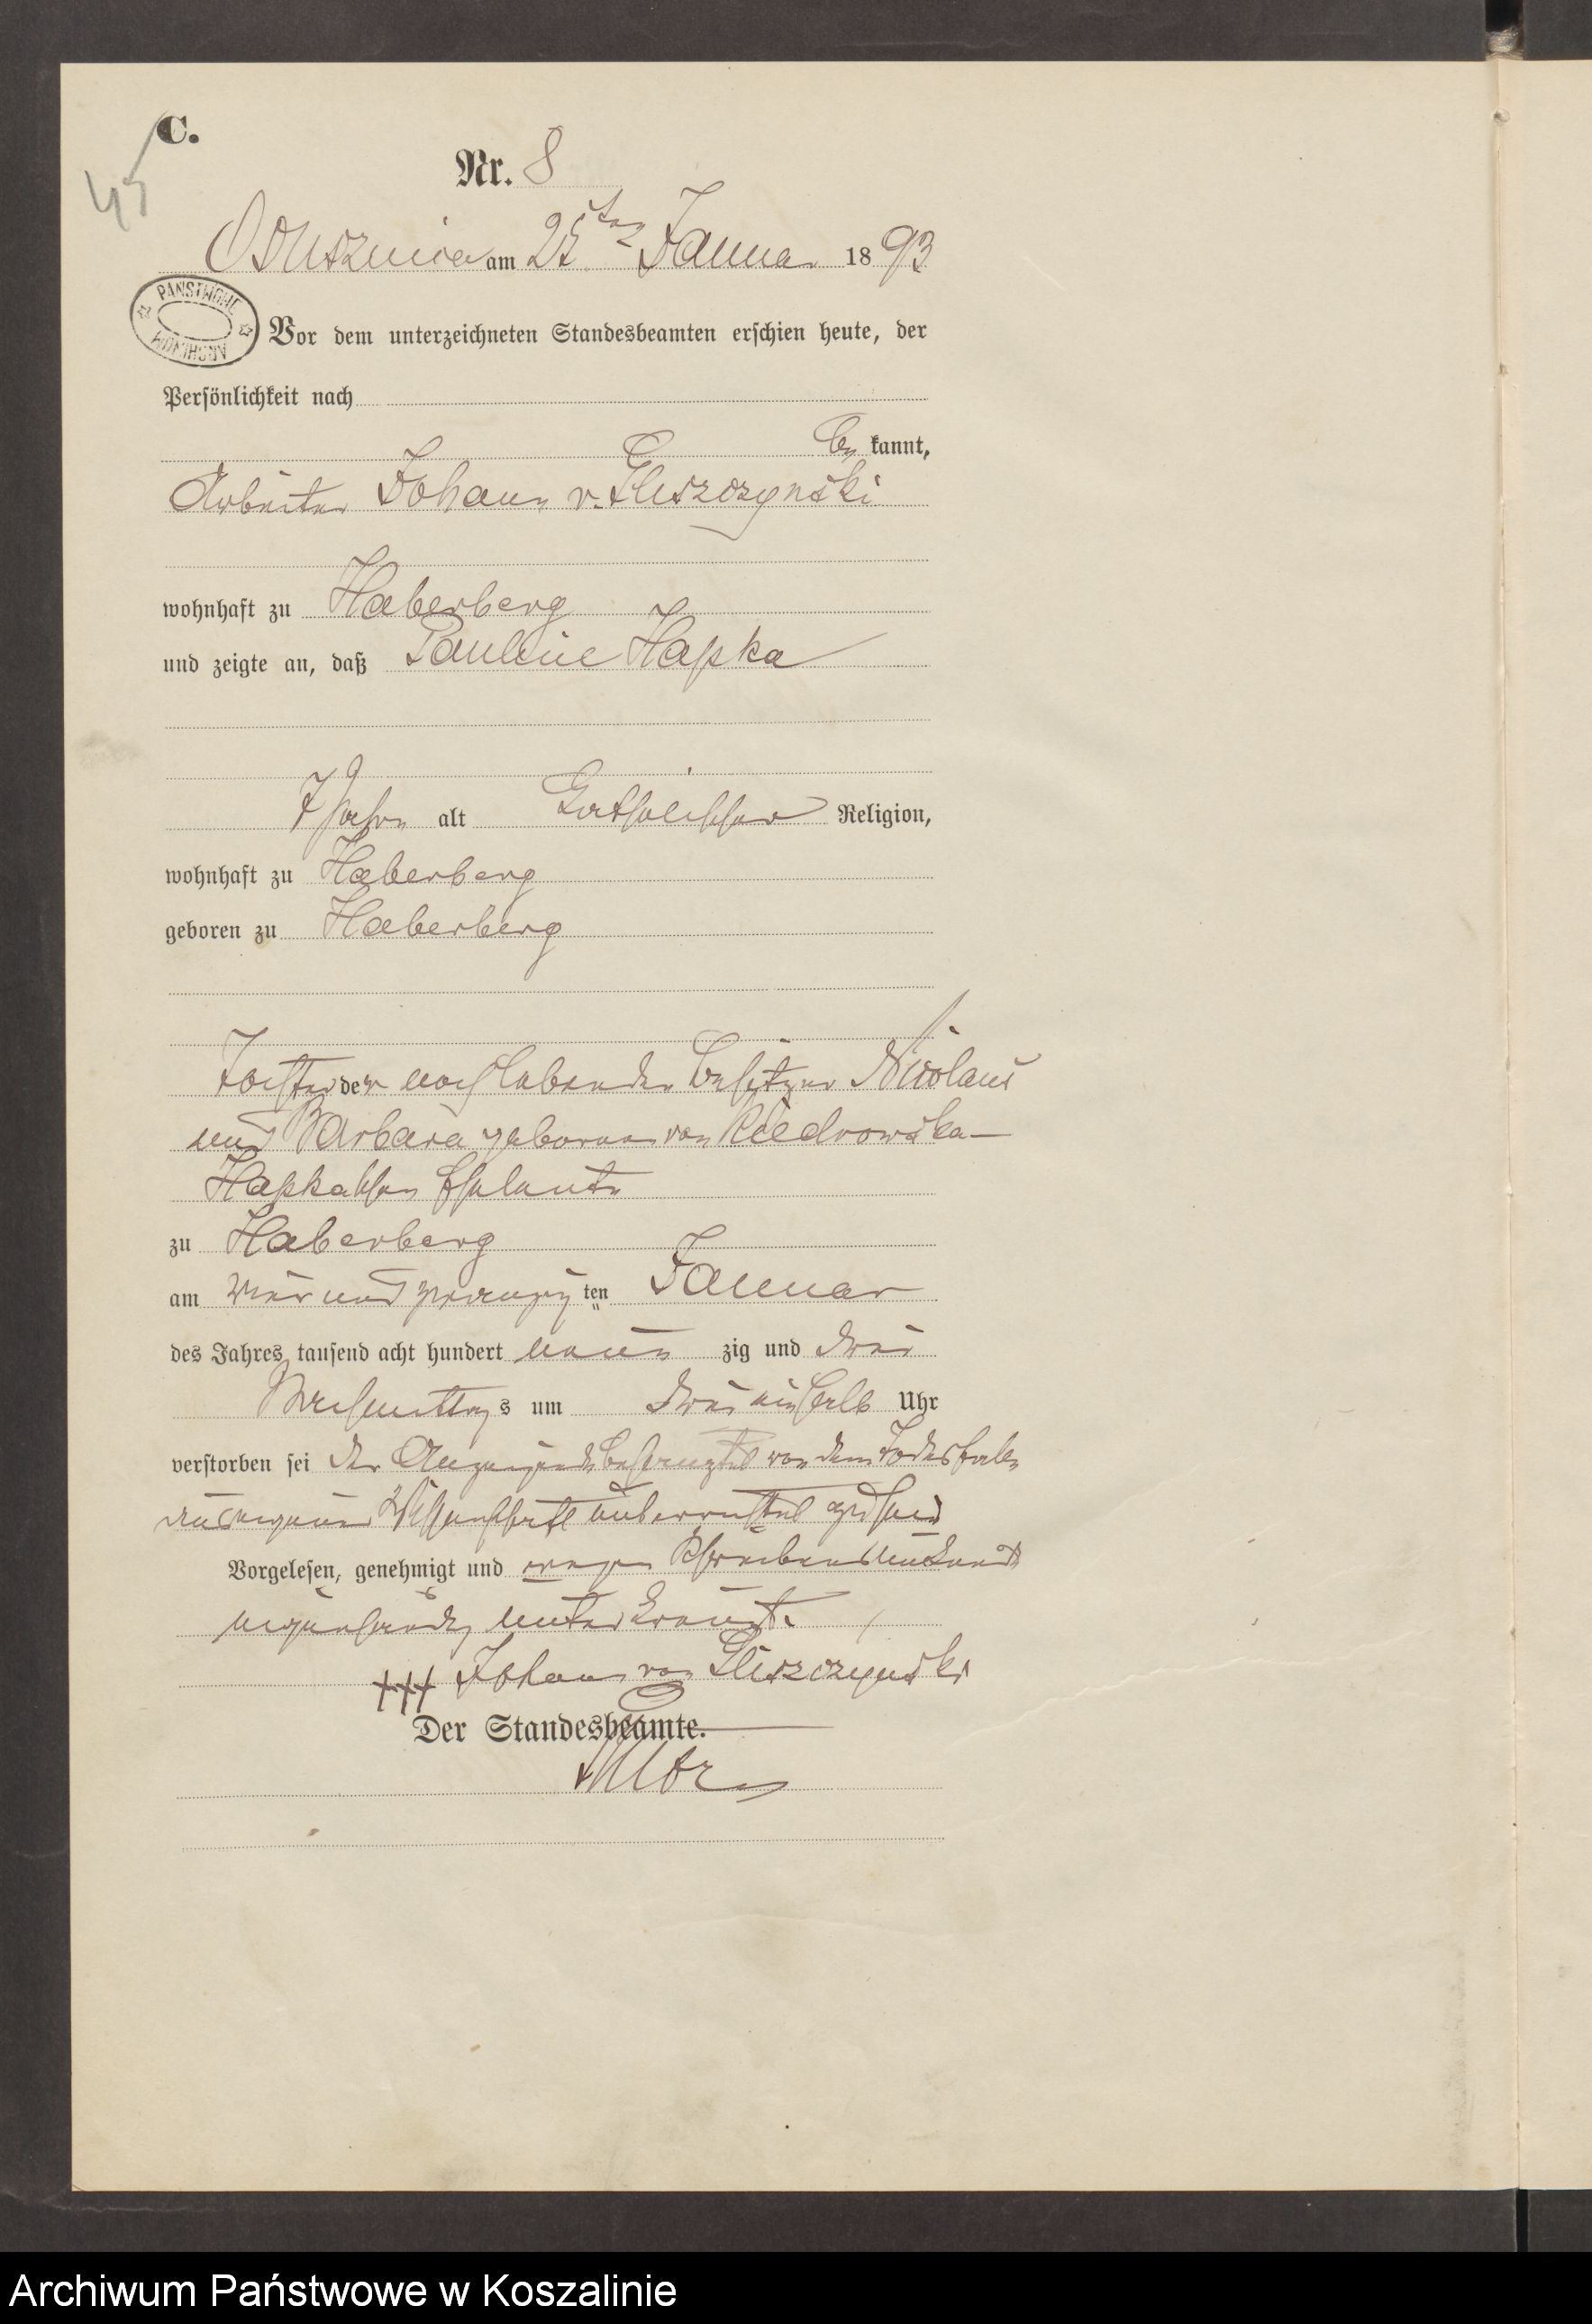 C.
45
Nr. 8
Osusznica am 25ten Januar 1893
PAŃSTWOWE ARCHIWUM
Vor dem unterzeichneten Standesbeamten erschien heute, der
Persönlichkeit nach
be kannt,
Arbeiter Johann v. Gliszczynski
wohnhaft zu Haberberg
und zeigte an, daß Pauline Hapka
7 Jahre alt katholischer Religion,
wohnhaft zu Haberberg
geboren zu Haberberg
Tochter der noch lebenden Besitzer Nicolaus
und Barbara geborene von
Hapkaschen Eheleute
zu Haberberg
am vier und zwanzig ten Januar
des Jahres tausend acht hundert neun zig und drei
Nachmittags um drei einhalb Uhr
verstorben sei der Anzeigende von dem Todesfalle
aus eigener Wissenschaft unterrichtet zu sein
Vorgelesen, genehmigt und wegen Schreibensunkunde
eigenhändig unterkreuzt.
+++ Johann von Gliszczynski
Der Standesbeamte.
Archiwum Państwowe w Koszalinie